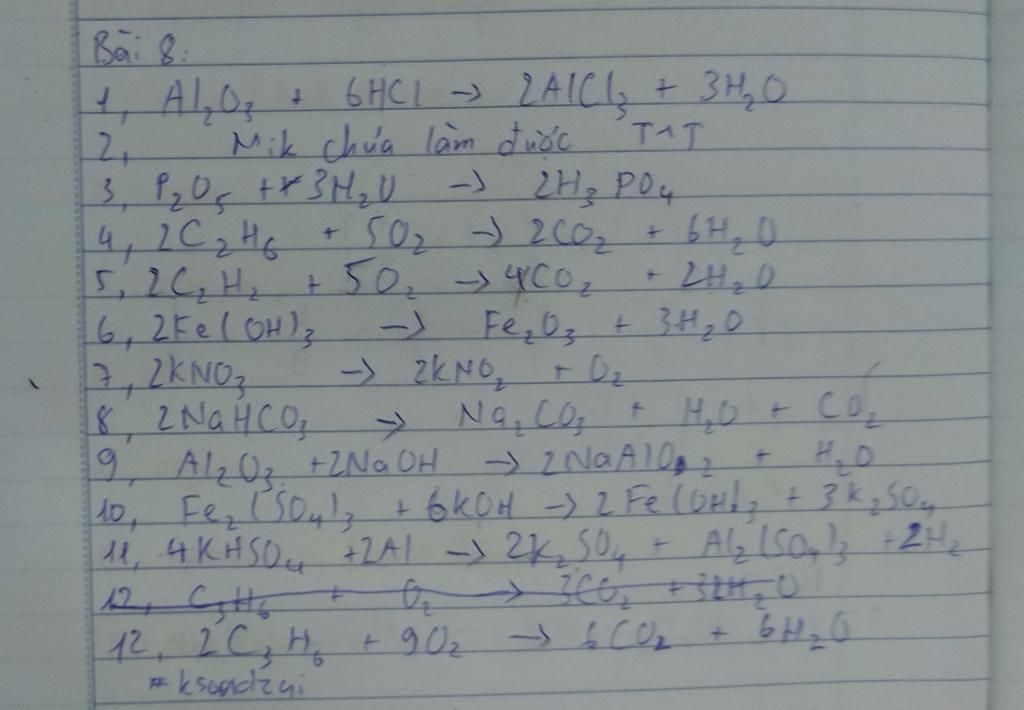 Bài 8:
1, Al₂O₃ + 6HCl → 2AlCl₃ + 3H₂O
2, Mik chứa làm được T^T
3, P₂O₅ + 3H₂O → 2H₃PO₄
4, 2C₂H₆ + 5O₂ → 2CO₂ + 6H₂O
5, 2C₂H₂ + 5O₂ → 4CO₂ + 2H₂O
6, 2Fe(OH)₃ → Fe₂O₃ + 3H₂O
7, 2KNO₃ → 2KNO₂ + O₂
8, 2NaHCO₃ → Na₂CO₃ + H₂O + CO₂
9, Al₂O₃ + 2NaOH → 2NaAlO₂ + H₂O
10, Fe₂(SO₄)₃ + 6KOH → 2Fe(OH)₃ + 3K₂SO₄
11, 4KHSO₄ + 2Al → 2K₂SO₄ + Al₂(SO₄)₃ + 2H₂
12, C₃H₆ + O₂ → 3CO₂ + 3H₂O
12, 2C₃H₆ + 9O₂ → 6CO₂ + 6H₂O